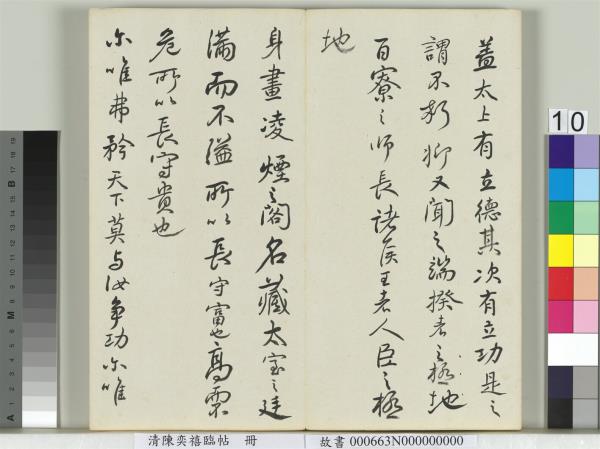 蓋太上有立德其次有立功是之
謂不朽抑又聞之端揆者之極地
百寮之師長諸侯王者人臣之極
地
身畫凌煙之閣名藏太室之廷
滿而不溢所以長守富也高而不
危所以長守貴也
尓唯弗矜天下莫与汝争功尓唯
10
清陳奕禧臨帖 冊 故書 000663N000000000